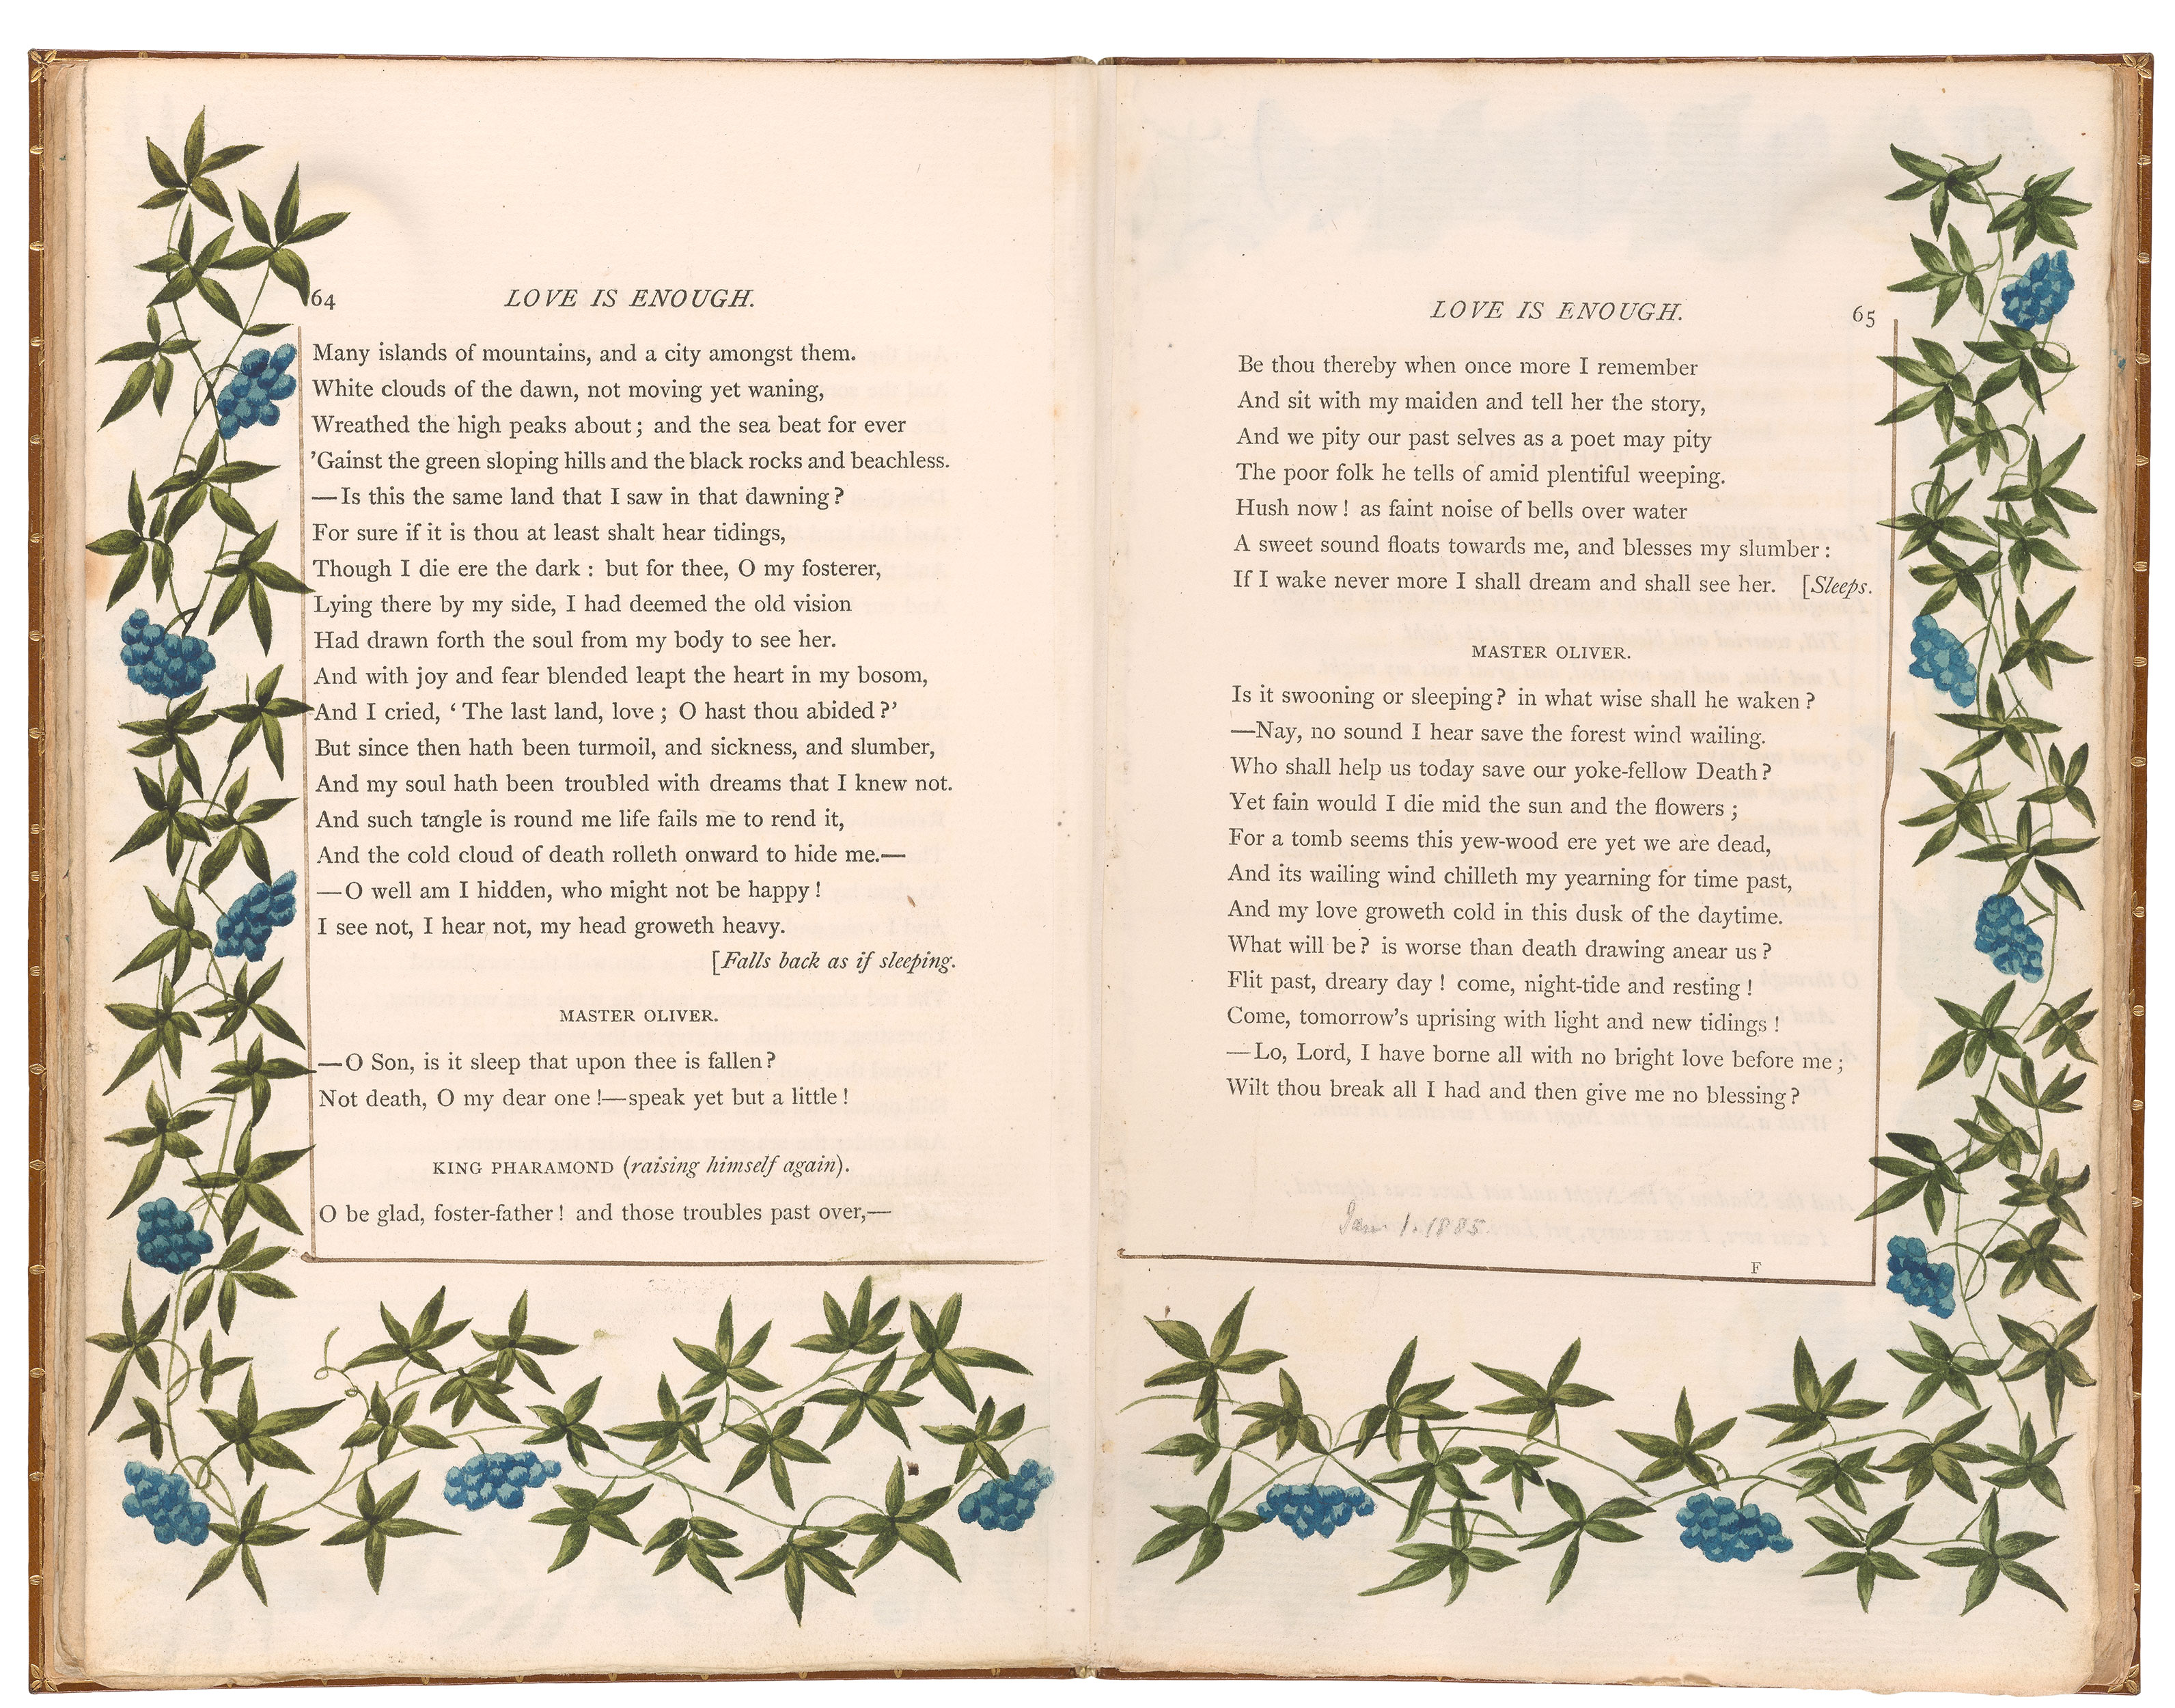 64
LOVE IS ENOUGH.
Many islands of mountains, and a city amongst them.
White clouds of the dawn, not moving yet waning,
Wreathed the high peaks about; and the sea beat for ever
'Gainst the green sloping hills and the black rocks and beachless.
—Is this the same land that I saw in that dawning?
For sure if it is thou at least shalt hear tidings,
Though I die ere the dark: but for thee, O my fosterer,
Lying there by my side, I had deemed the old vision
Had drawn forth the soul from my body to see her.
And with joy and fear blended leapt the heart in my bosom,
And I cried, 'The last land, love; O hast thou abided?'
But since then hath been turmoil, and sickness, and slumber,
And my soul hath been troubled with dreams that I knew not.
And such tangle is round me life fails me to rend it,
And the cold cloud of death rolleth onward to hide me.—
—O well am I hidden, who might not be happy!
I see not, I hear not, my head groweth heavy.
[Falls back as if sleeping.
MASTER OLIVER.
—O Son, is it sleep that upon thee is fallen?
Not death, O my dear one!—speak yet but a little!
KING PHARAMOND (raising himself again).
O be glad, foster-father! and those troubles past over,—
LOVE IS ENOUGH.
65
Be thou thereby when once more I remember
And sit with my maiden and tell her the story,
And we pity our past selves as a poet may pity
The poor folk he tells of amid plentiful weeping.
Hush now! as faint noise of bells over water
A sweet sound floats towards me, and blesses my slumber:
If I wake never more I shall dream and shall see her. [Sleeps.
MASTER OLIVER.
Is it swooning or sleeping? in what wise shall he waken?
—Nay, no sound I hear save the forest wind wailing.
Who shall help us today save our yoke-fellow Death?
Yet fain would I die mid the sun and the flowers;
For a tomb seems this yew-wood ere yet we are dead,
And its wailing wind chilleth my yearning for time past,
And my love groweth cold in this dusk of the daytime.
What will be? is worse than death drawing anear us?
Flit past, dreary day! come, night-tide and resting!
Come, tomorrow's uprising with light and new tidings!
—Lo, Lord, I have borne all with no bright love before me;
Wilt thou break all I had and then give me no blessing?
Jan 1. 1885.
F